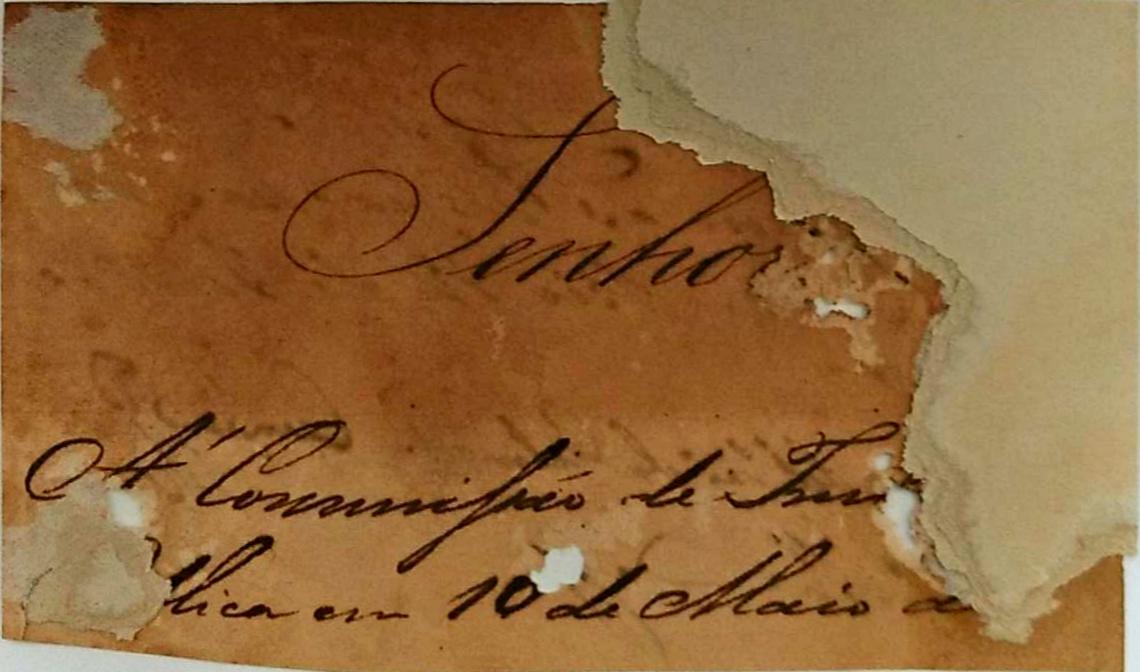 Senhor
A' Commissão de
blica em 10 de Maio de